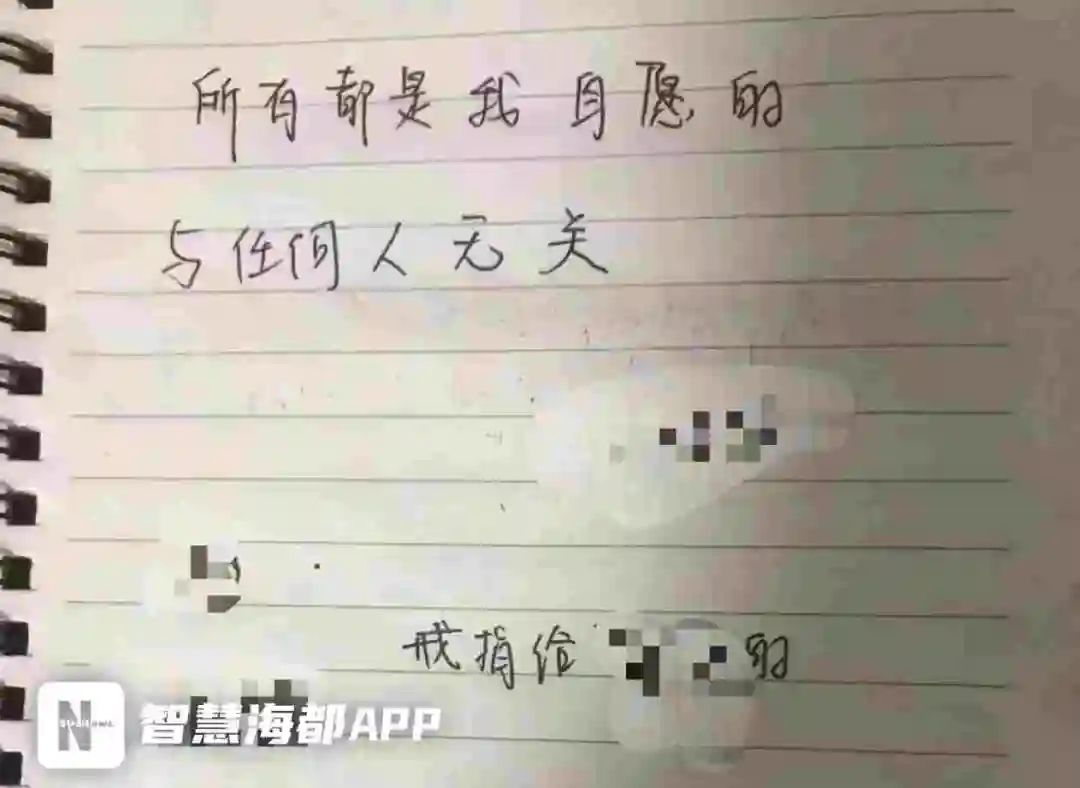 所有都是我自愿的
与任何人无关
戒指给
的
智慧海都APP